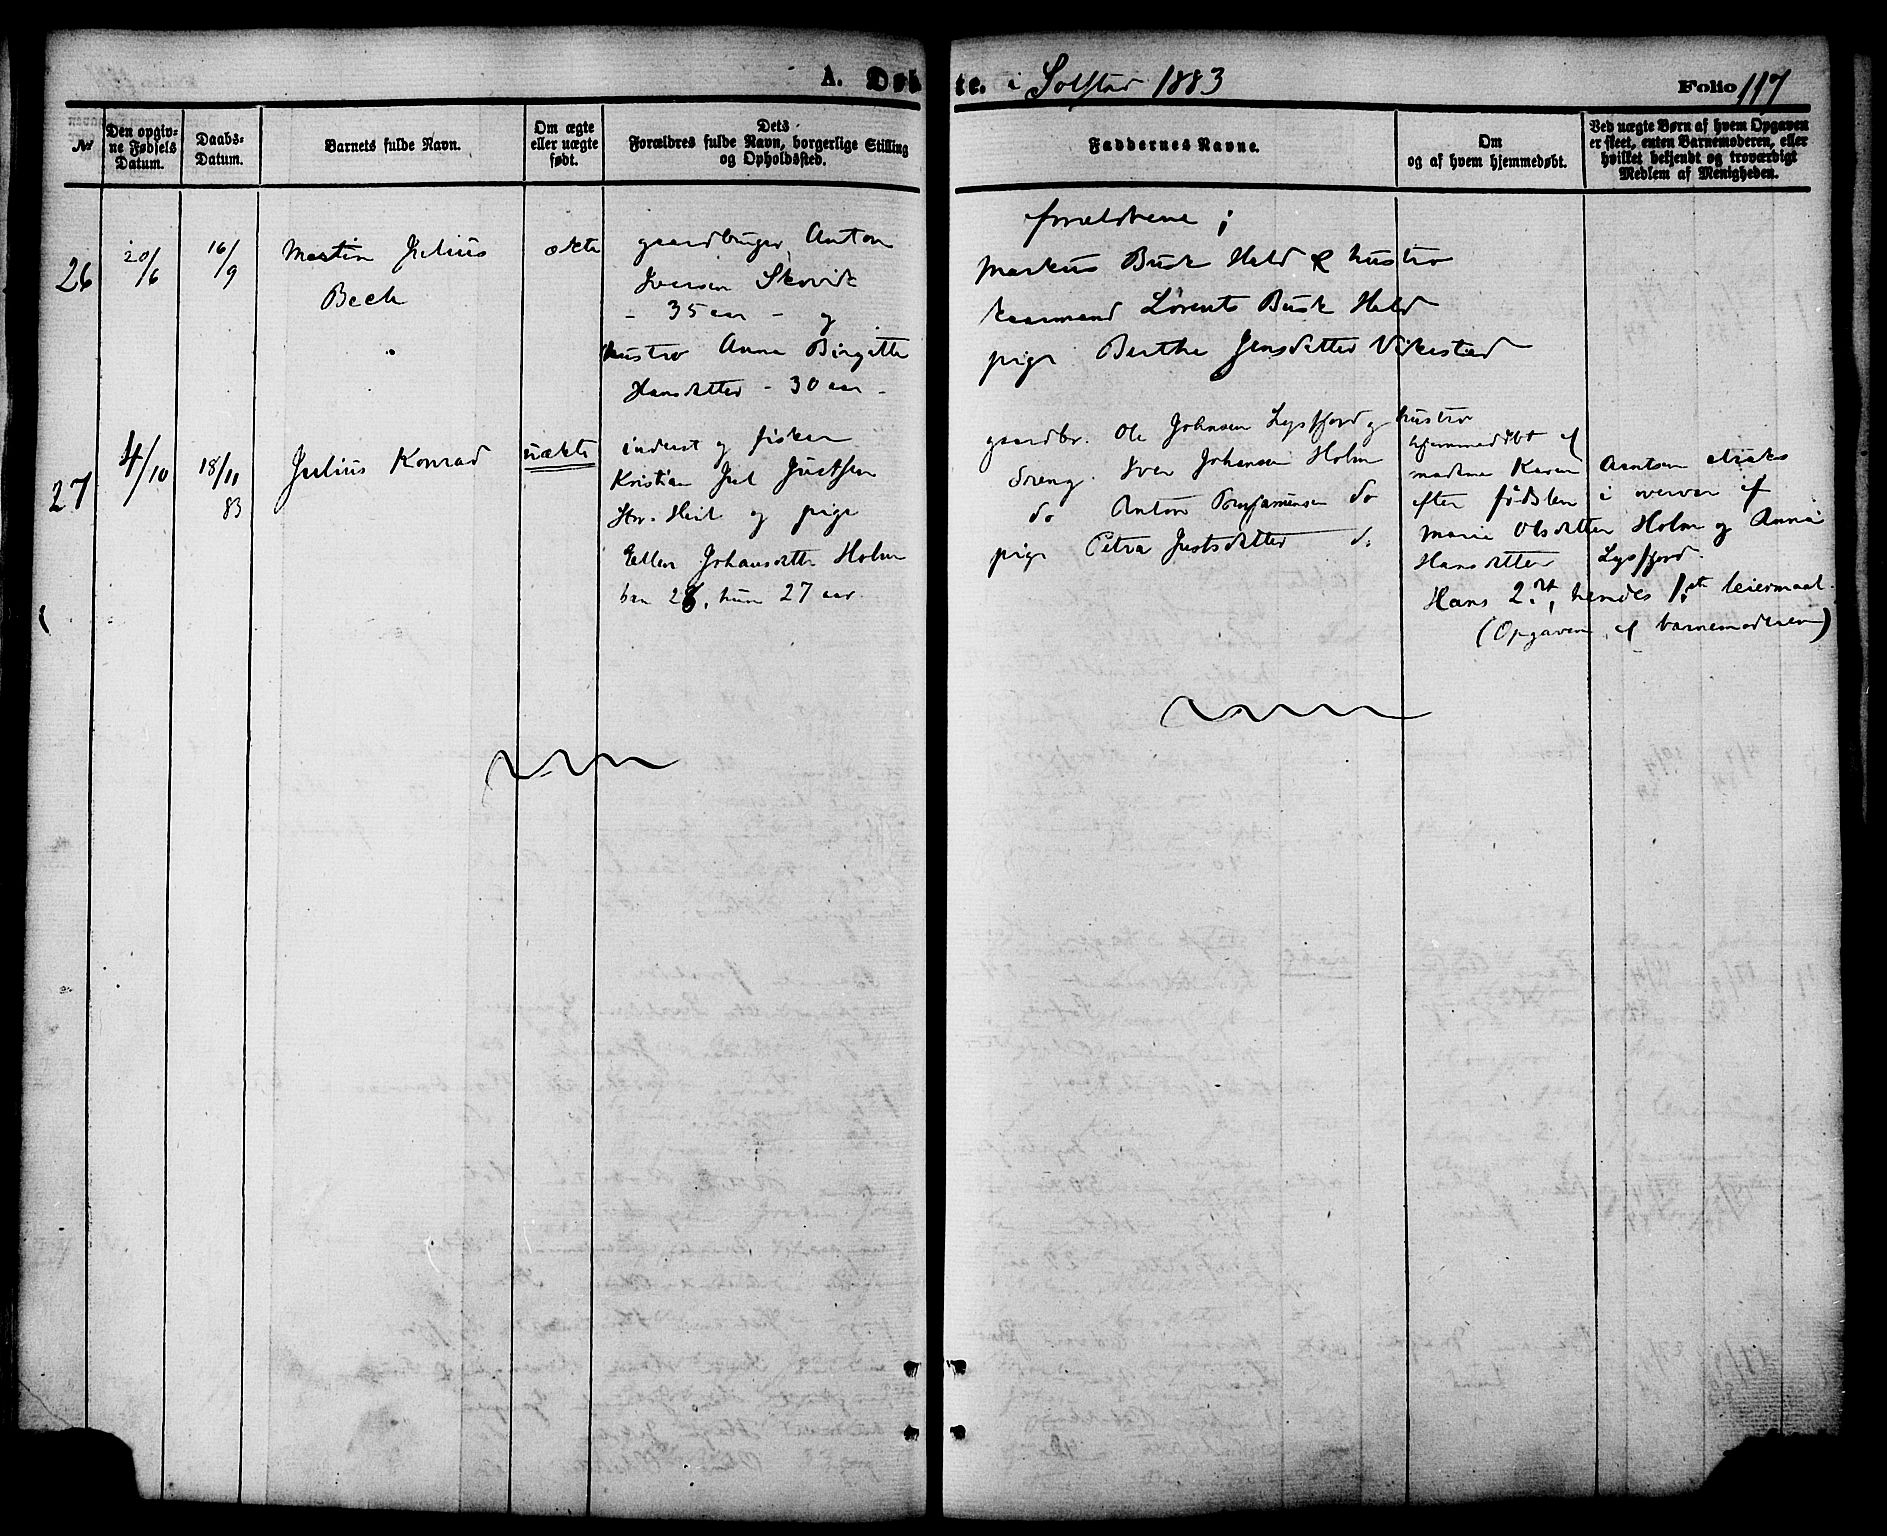 A. Døbte. i Solstad 1883 Folio 117
No
Den opgiv-
ne Fødsels
Datum.
Daabs-
Datum.
Barnets fulde Navn.
Om ægte
eller uægte
født.
Dets
Forældres fulde Navn, borgerlige Stilling
og Opholdssted.
Faddernes Navne.
Om
og af hvem hjemmedøbt.
Ved uægte Børn af hvem Opgaven
er skeet, enten Barnemoderen, eller
hvilket bekjendt og troværdigt
Medlem af Menigheden.
26
20/6
16/9
Martin Julius
Beck
ækte
gaardbruger Anton
Iversen Skovik
- 35 aar - og
hustro Anna Birgitte
Hansdatter - 30 aar -
forældrene ;
Markus Busk Hald & hustro
kaarmand Lorents Busk Hald
pige Berthe Jensdatter Vikestad
27
4/10
18/11
83
Julius Konrad
uækte
inderst og fisker
Kristian Juel Justsen
Hr. Heit og pige
Ellen Johansdatter Holm
han 28, hun 27 aar.
gaardbr. Ole Johnsen Lysfjord og hustro
dreng Iver Johansen Holm
do Anton Benjaminsen do
pige Petra Justsdatter do
hjemmedöbt af
madame Karen Arntsen straks
efter födslen i overvær af
Marie Olsdatter Holm og Anna
Hansdatter Lysfjord.
Hans 2det, hendes 1ste leiermaal.
(Opgaven af barnemoderen)